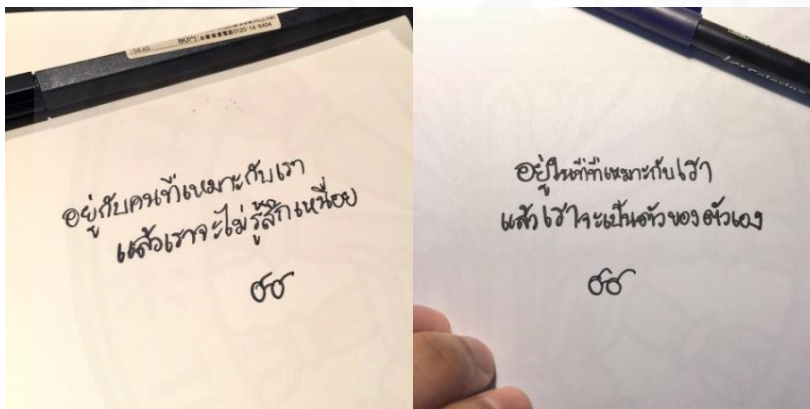 อยู่กับคนที่เหมาะกับเรา
แล้วเราจะไม่รู้สึกเหนื่อย
อยู่ในที่ที่เหมาะกับเรา
แล้วเราจะเป็นตัวของตัวเอง